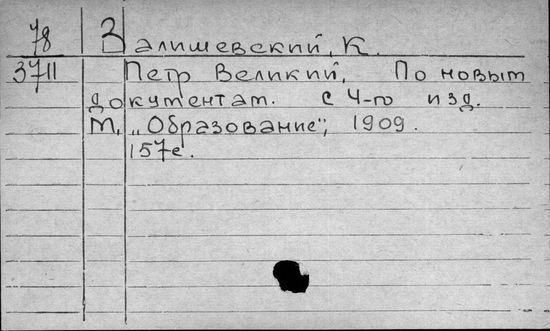 78 Залишевский, К.
3711 Петр Великий. По новым
документам. с 4-го изд.
М. „Образование", 1909.
157с.